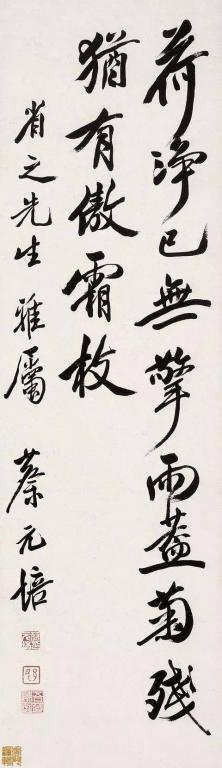 荷净已無擎雨蓋菊殘
猶有傲霜枝
省之先生雅屬 蔡元培